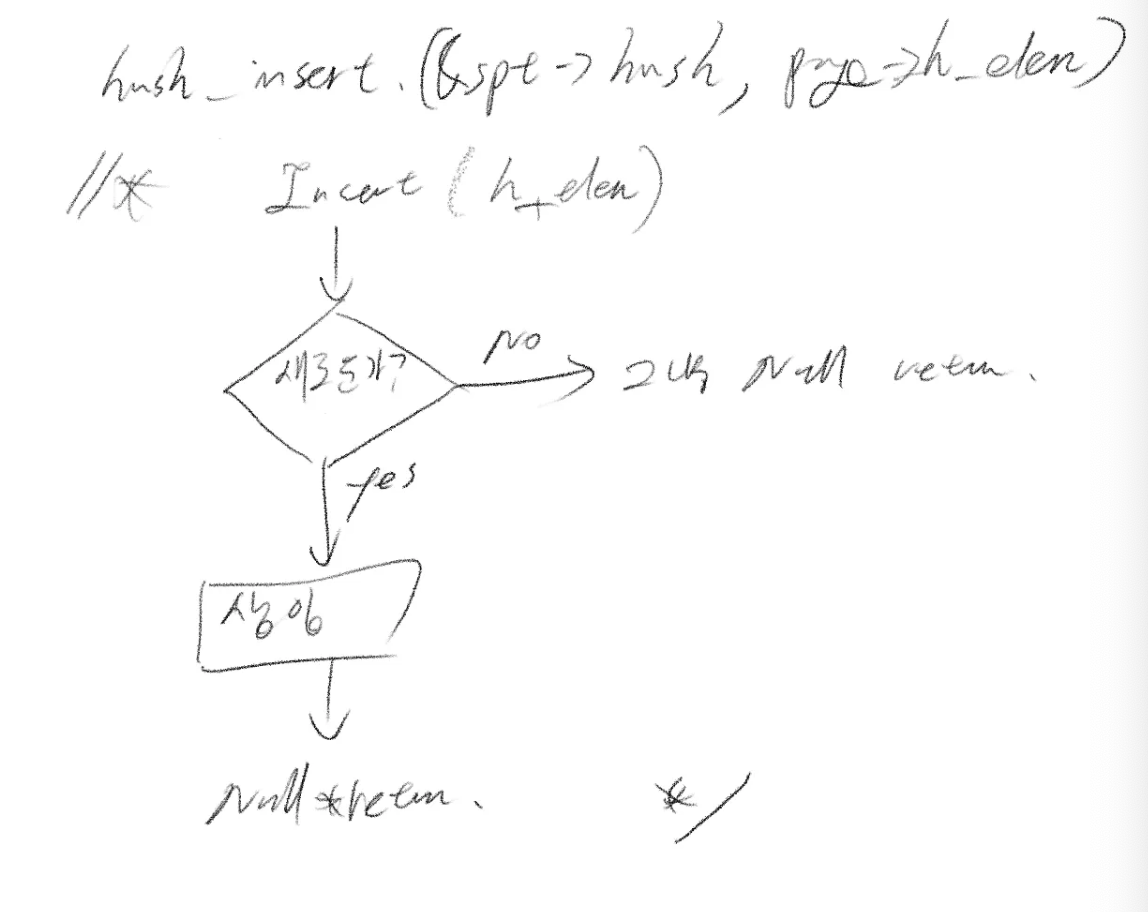 hash_insert.(&spt->hash, page->h_elem)
//* Insert (h_elem)
새로운가?
No
그냥 Null return.
yes
삽입
Null * return. */